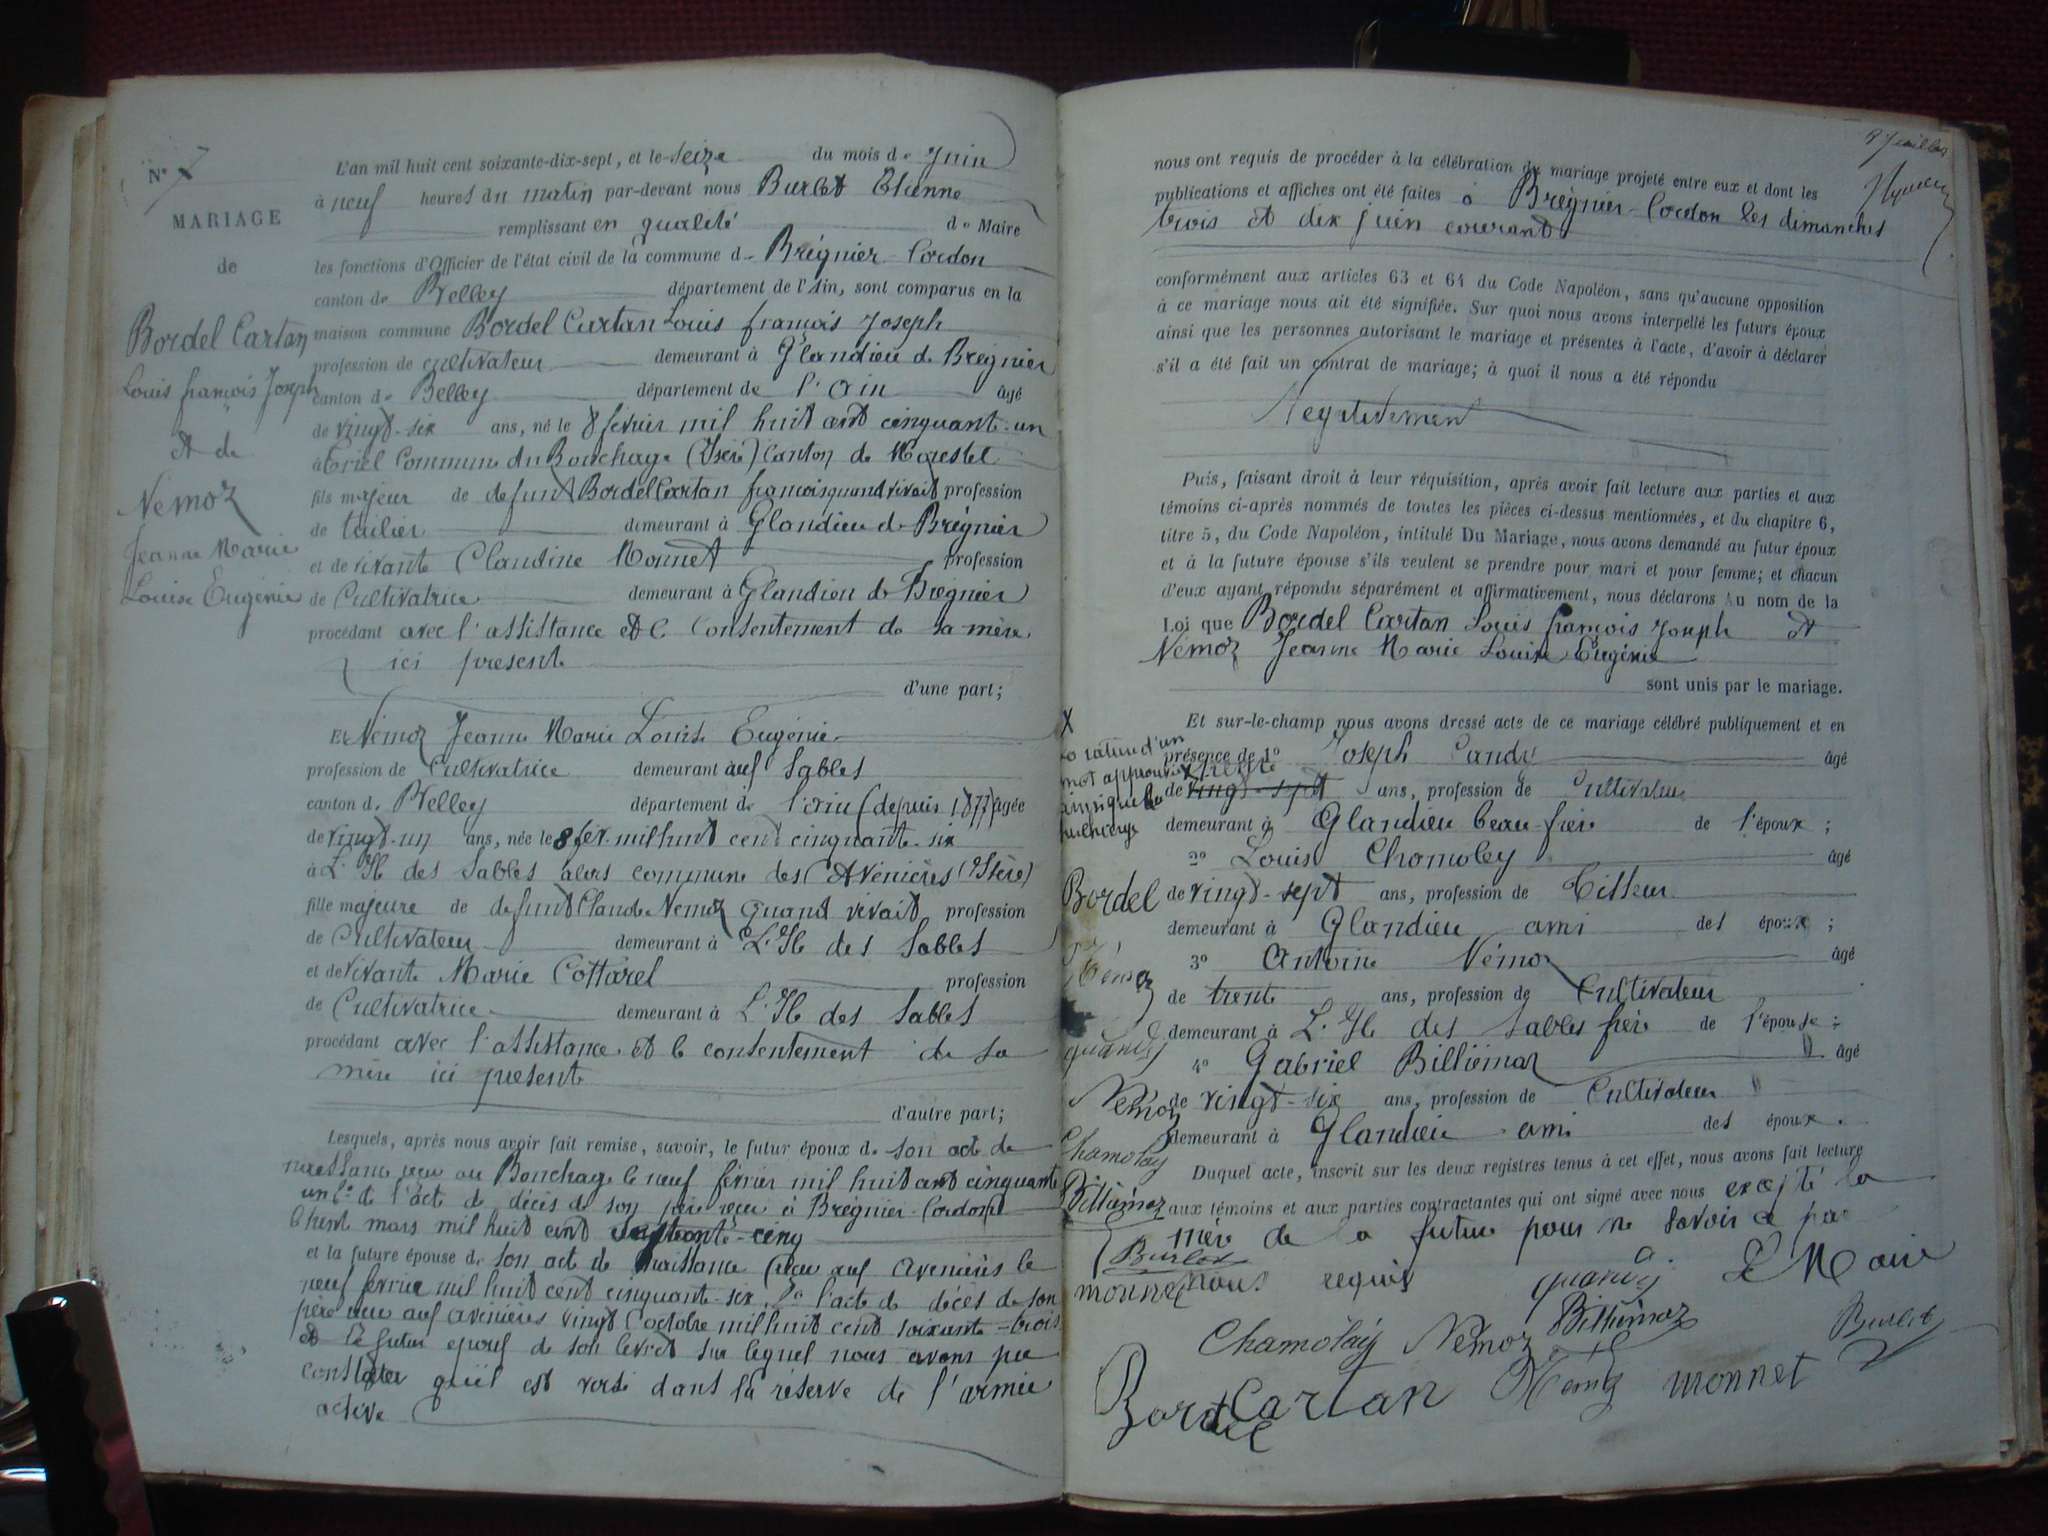 N° 7
MARIAGE
de
Bordel Cartan
Louis françois Joseph
et de
Némoz
Jeanne Marie
Louise Eugénie
L'an mil huit cent soixante-dix-sept, et le seize du mois de Juin
à neuf heures du matin par-devant nous Burlet Etienne
remplissant en qualité de Maire
les fonctions d'Officier de l'état civil de la commune de Brégnier-Cordon
canton de Belley département de l'Ain, sont comparus en la
maison commune Bordel Cartan Louis françois Joseph
profession de cultivateur demeurant à Glandieu de Bregnier
canton de Belley département de l'Ain âgé
de vingt-six ans, né le 8 février mil huit cent cinquante-un
à Eriel Commune du Bouchage (Isère) Canton de Morestel
fils majeur de defunt Bordel Cartan françois quand vivait profession
de tuilier demeurant à Glandieu de Brégnier
et de vivante Claudine Monnet profession
de Cultivatrice demeurant à Glandieu de Bregnier
procédant avec l'assistance et le Consentement de sa mère
ici présente
d'une part;
Et Némoz Jeanne Marie Louise Eugénie
profession de Cultivatrice demeurant aux Sables
canton de Belley département de l'Ain (depuis 1877) âgée
de vingt-un ans, née le 8 fev. mil huit cent cinquante-six
à L'Ile des Sables alors commune des Avenières (Isère)
fille majeure de defunt Claude Nemoz quand vivait profession
de Cultivateur demeurant à L'Ile des Sables
et de vivante Marie Cottarel profession
de Cultivatrice demeurant à L'Ile des Sables
procédant avec l'assistance et le consentement de sa
mère ici présente
d'autre part;
Lesquels, après nous avoir fait remise, savoir, le futur époux de son acte de
naissance reçu au Bouchage le neuf février mil huit cent cinquante
un 2° de l'acte de décès de son père reçu à Brégnier-Cordon le
trent mars mil huit cent septante-cinq
et la future épouse de son acte de naissance reçu aux Avenières le
neuf février mil huit cent cinquante-six 2° l'acte de décès de son
père reçu aux avenières vingt octobre mil huit cent soixante-trois
et le futur epoux de son livret sur lequel nous avons pu
constater qu'il est versé dans la réserve de l'armée
active
nous ont requis de procéder à la célébration du mariage projeté entre eux et dont les
publications et affiches ont été faites à Brégnier-Cordon les dimanches
trois et dix juin courant
conformément aux articles 63 et 64 du Code Napoléon, sans qu'aucune opposition
à ce mariage nous ait été signifiée. Sur quoi nous avons interpellé les futurs époux
ainsi que les personnes autorisant le mariage et présentes à l'acte, d'avoir à déclarer
s'il a été fait un contrat de mariage; à quoi il nous a été répondu
Negativement
Puis, faisant droit à leur réquisition, après avoir fait lecture aux parties et aux
témoins ci-après nommés de toutes les pièces ci-dessus mentionnées, et du chapitre 6,
titre 5, du Code Napoléon, intitulé Du Mariage, nous avons demandé au futur époux
et à la future épouse s'ils veulent se prendre pour mari et pour femme; et chacun
d'eux ayant répondu séparément et affirmativement, nous déclarons au nom de la
Loi que Bordel Cartan Louis françois Joseph et
Némoz Jeanne Marie Louise Eugénie
sont unis par le mariage.
Et sur-le-champ nous avons dressé acte de ce mariage célébré publiquement et en
présence de 1° Joseph âgé
X trente
de vingt-sept ans, profession de Cultivateur
demeurant à Glandieu beau-frère de l'époux;
2° Louis Chomoley âgé
de vingt-sept ans, profession de Tisseur
demeurant à Glandieu ami des époux;
3° Antoine Némoz âgé
de trente ans, profession de Cultivateur
demeurant à L'Ile des Sables frère de l'épouse;
4° Gabriel Billiémaz âgé
de vingt-six ans, profession de Cultivateur
demeurant à Glandieu ami des époux.
Duquel acte, inscrit sur les deux registres tenus à cet effet, nous avons fait lecture
aux témoins et aux parties contractantes qui ont signé avec nous excepté la
mère de la future pour ne savoir ce par
nous requis
Le Maire
X
rature d'un
mot approuvé
Bordel
Némoz
Némoz
Chamolay
Billiémaz
Burlet
monnet
Billiémaz
Chamolay Némoz
Burlet
Bordel Cartan
monnet